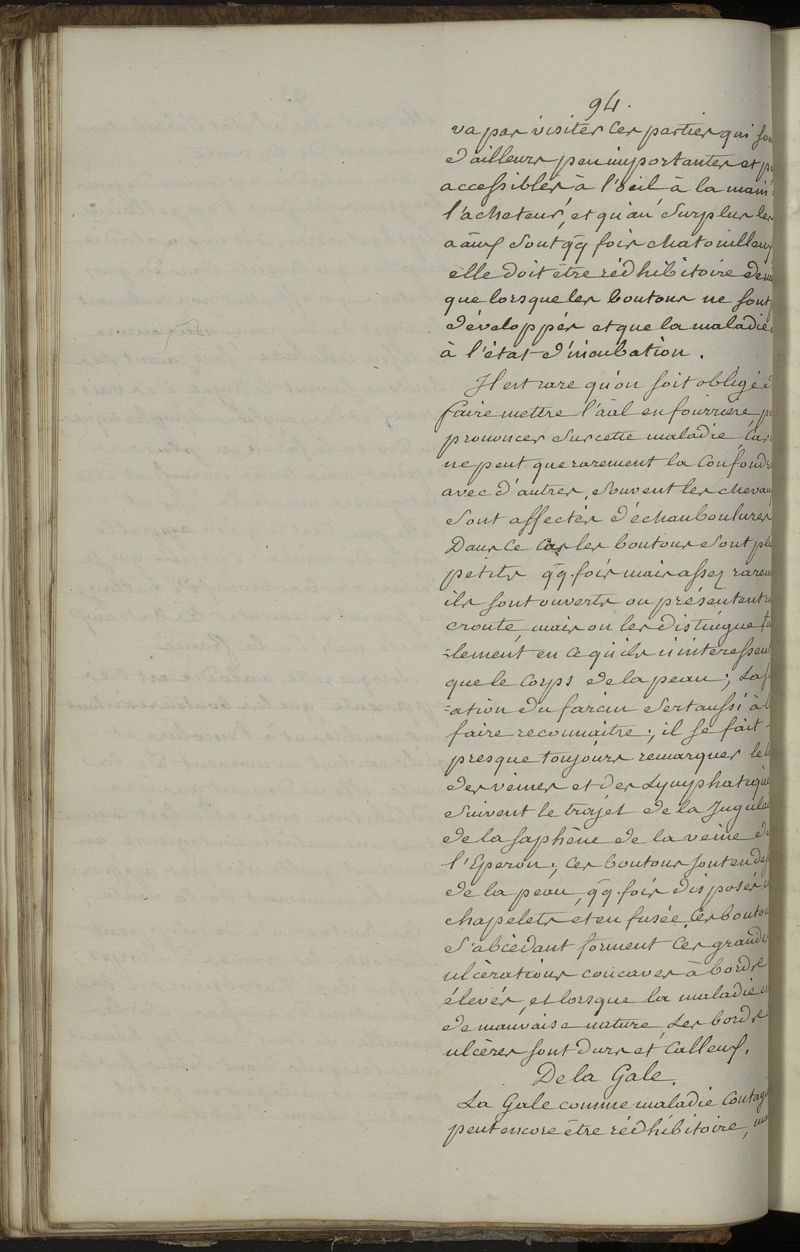 94.
va pas visiter ces parties qui so
d'ailleurs peu importantes et p
accessibles à l'œil à la main
l'acheteur, et qu'au surplus les
aãux sont qq fois chatouilleux
elle doit être rédhibitoire de
que lorsque les boutons ne sont
développés et que la maladie
à l'état d'incubation.
Il est rare qu'on soit obligé d
faire mettre l'aãl en fourriere p
prononcer sur cette maladie, Car
ne peut que rarement la Confondr
avec d'autres, souvent les chevau
sont affectés d'échauboulures
Dans ce Cas les boutons sont pl
petits qq. fois mais assez rarem
ils sont ouverts ou présentent
croute, mais on les distingue
=lement en ce qu'ils n'intéressent
que le Corps de la peau; La
=ation du farcin sert aussi à l
faire reconnaitre; il se fait
presque toujours remarquer le
des veines et des Lymphatique
suivent le trajet de la Jugula
de la saphène de la veine d
l'Eperon; Ces boutons sont en de
de la peau, qq. fois disposés e
chapelets et en fusée, Ces bouto
s'abcèdant forment Ces grande
ulcérations concaves à bords
élevés, et lorsque la maladie e
de mauvaise nature, Les bords
ulcères sont durs et Calleux.
De la Gale.
La Gale comme maladie Contagi
peut encore être rédhibitoire, ma